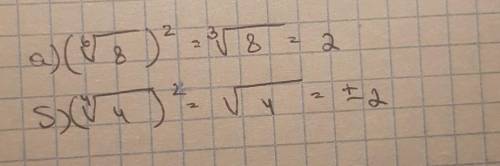 а) (⁶√8)² = ³√8 = 2
б) (⁴√4)² = √4 = ±2